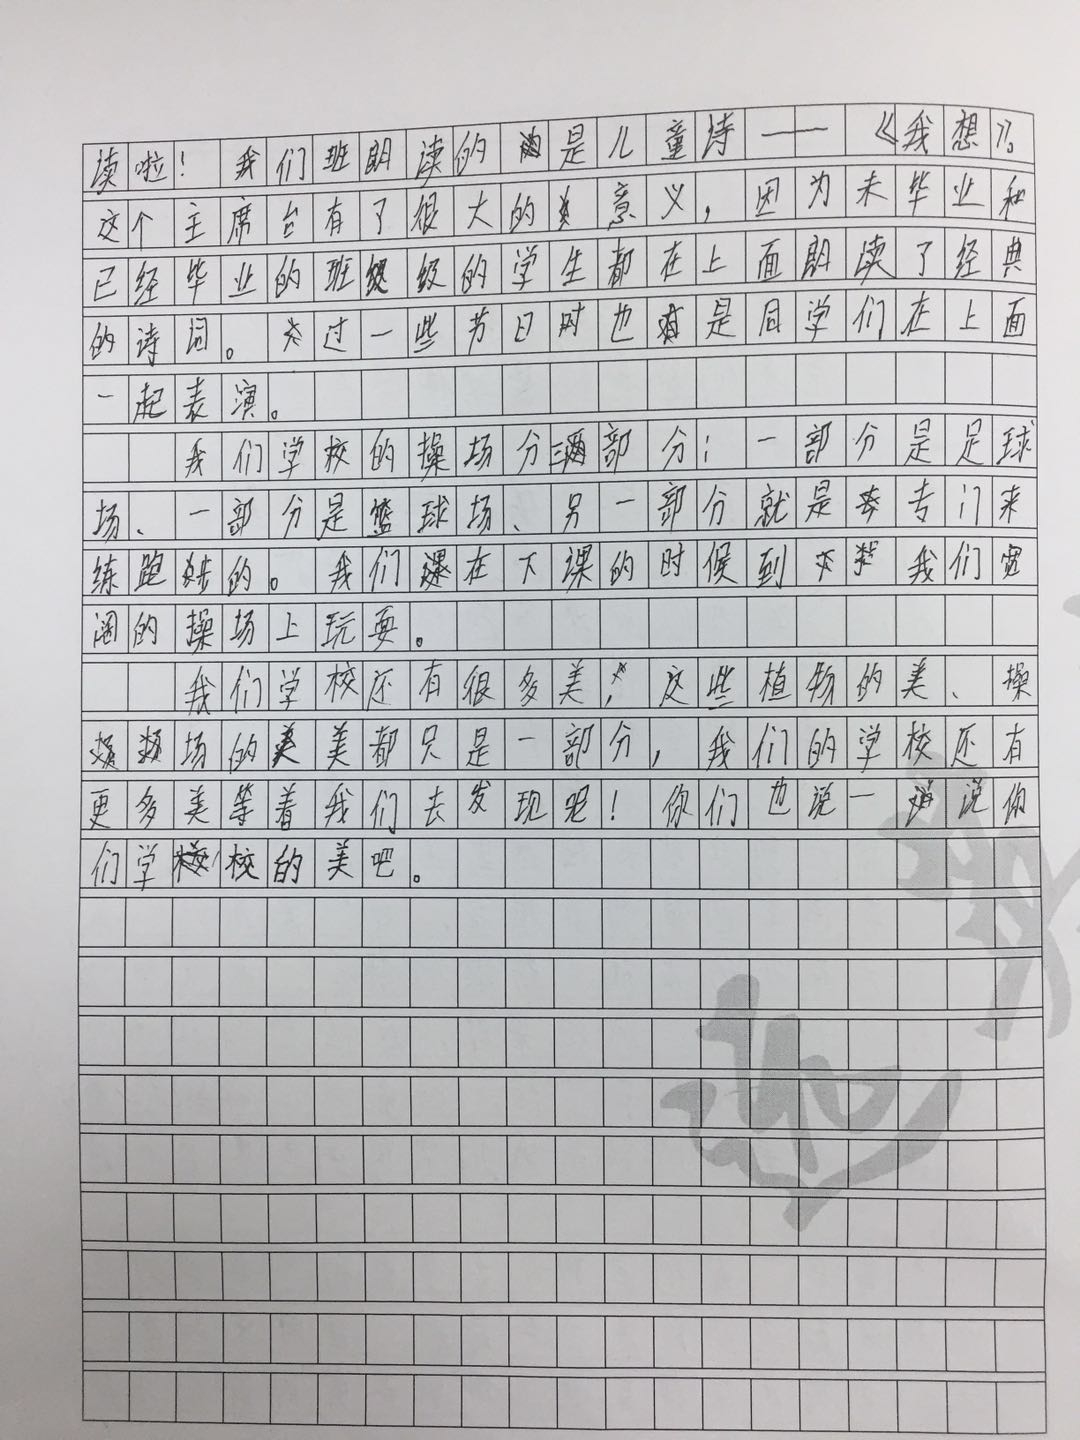 读啦！我们班朗读的是儿童诗——《我想》。
这个主席台有了很大的意义，因为未毕业和
已经毕业的班级的学生都在上面朗读了经典
的诗词。过一些节日时也是同学们在上面
一起表演。
我们学校的操场分三部分：一部分是足球
场、一部分是篮球场、另一部分就是专门来
练跑步的。我们在下课的时候到我们宽
阔的操场上玩耍。
我们学校还有很多美，这些植物的美、操
场的美都只是一部分，我们的学校还有
更多美等着我们去发现吧！你们也说一说你
们学校的美吧。